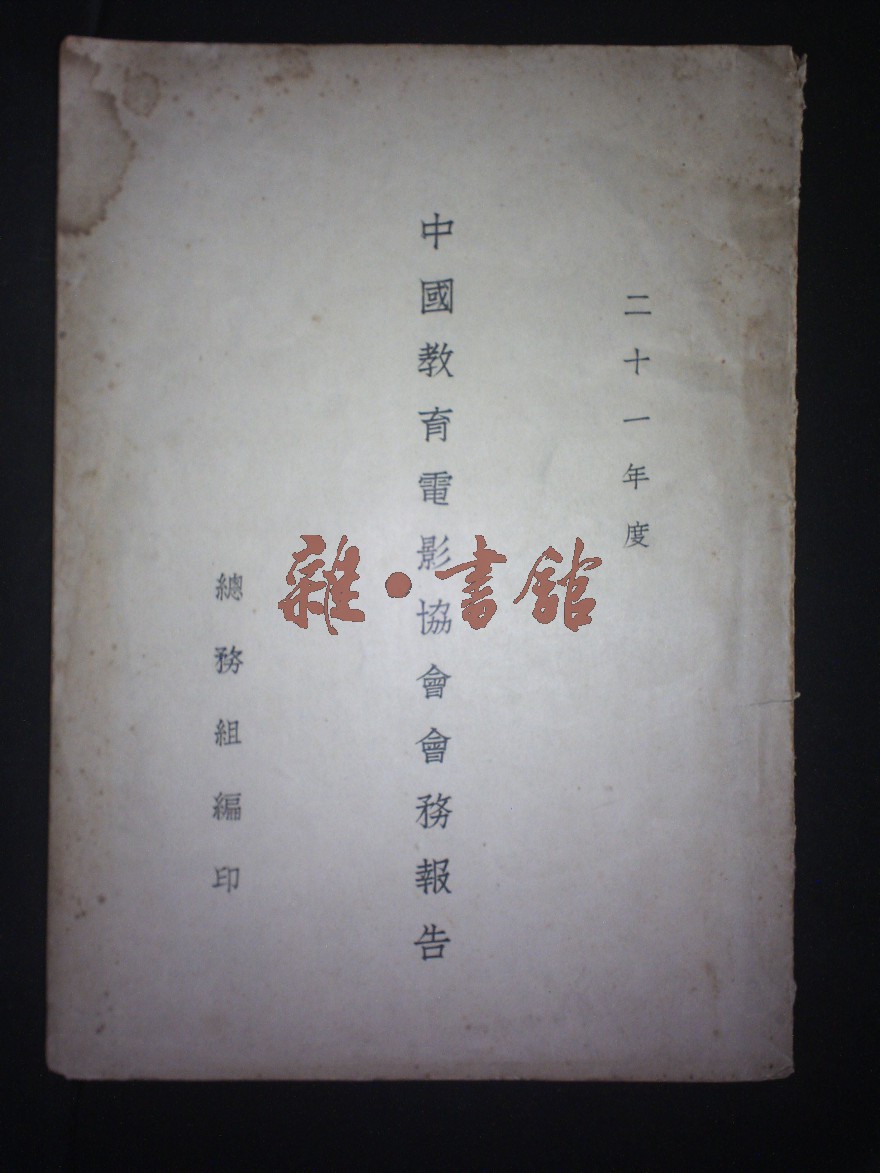 二十一年度
中國教育電影協會會務報告
總務組編印
雜·書館